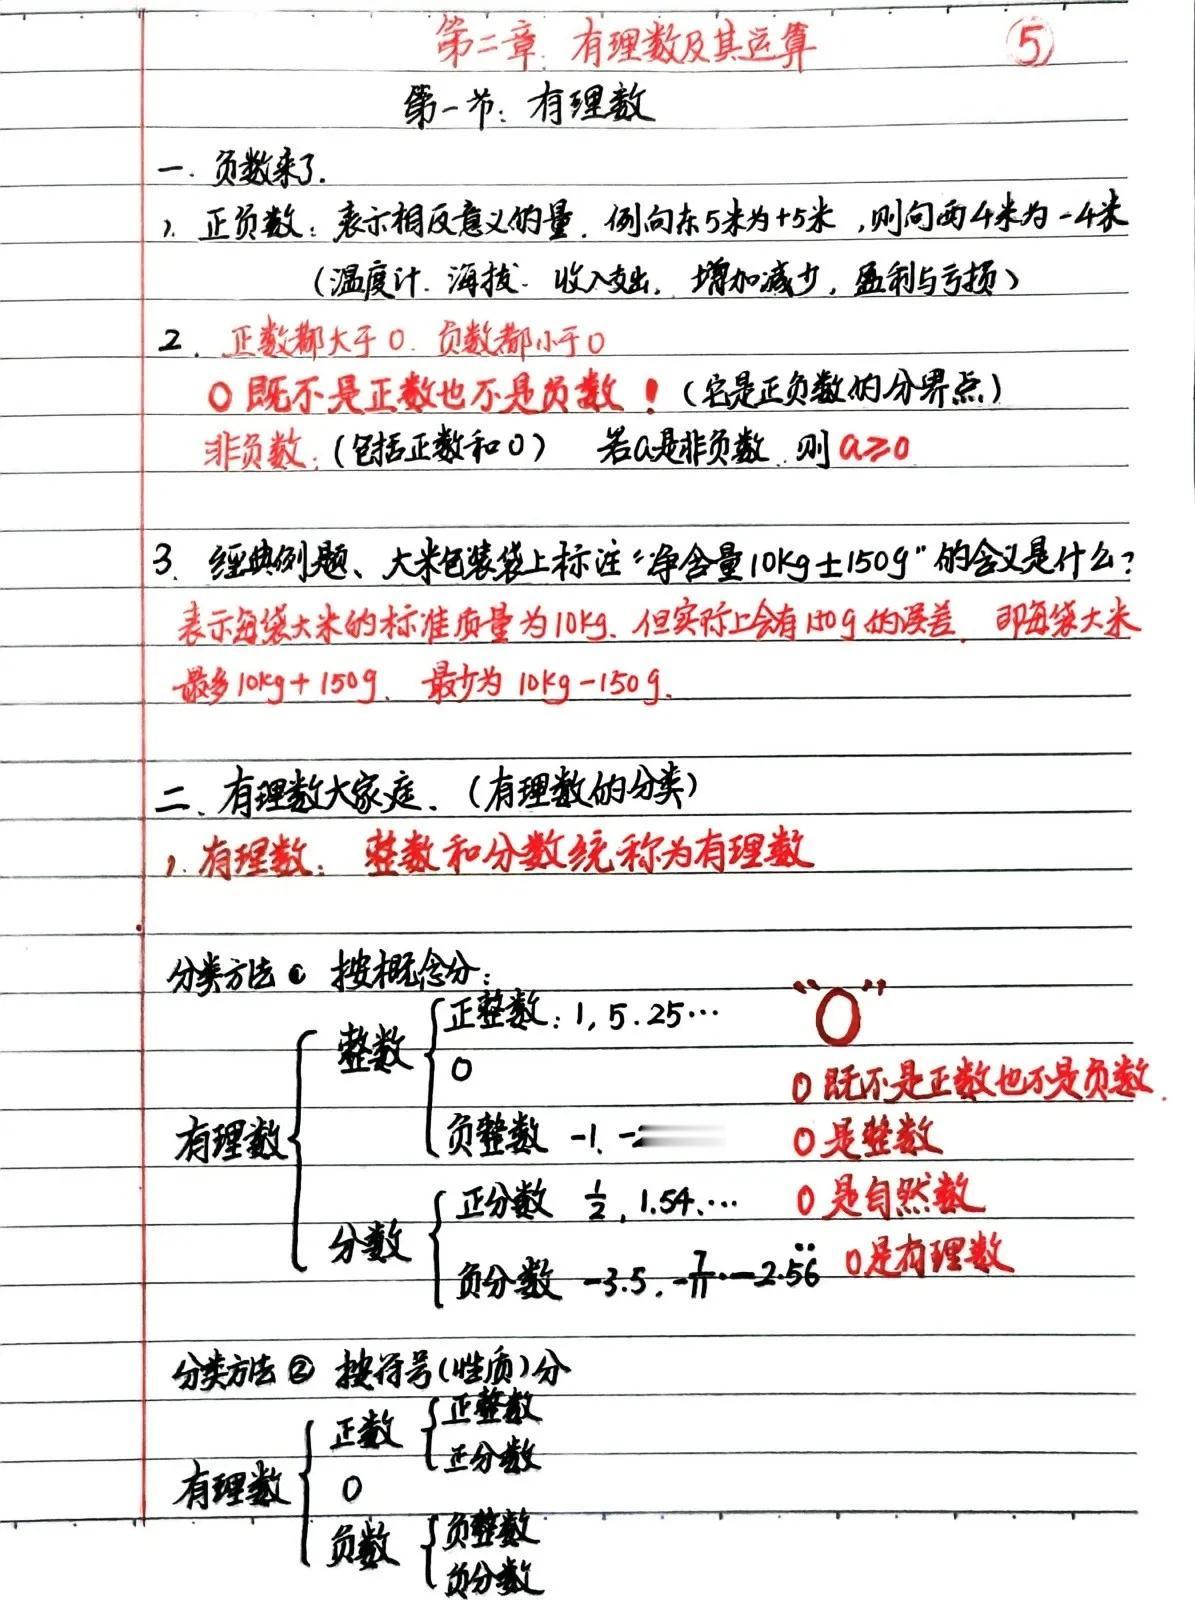 第二章. 有理数及其运算 ⑤
第一节: 有理数
一. 负数来了.
1. 正负数: 表示相反意义的量. 例向东5米为+5米, 则向西4米为-4米
(温度计. 海拔. 收入支出. 增加减少, 盈利与亏损)
2. 正数都大于0. 负数都小于0
0既不是正数也不是负数! (它是正负数的分界点)
非负数: (包括正数和0) 若a是非负数. 则 a≥0
3. 经典例题、大米包装袋上标注“净含量10kg±150g”的含义是什么?
表示每袋大米的标准质量为10kg. 但实际上会有150g的误差. 即每袋大米
最多10kg+150g. 最少为10kg-150g.
二. 有理数大家庭. (有理数的分类)
1. 有理数: 整数和分数统称为有理数
分类方法① 按概念分:
有理数
整数
正整数: 1, 5. 25…
0
负整数 -1.
分数
正分数 1/2, 1.54. …
负分数 -3.5. -7/11. -2.5̇6̇
“0”
0既不是正数也不是负数.
0是整数
0是自然数
0是有理数
分类方法② 按符号(性质)分
有理数
正数
正整数
正分数
0
负数
负整数
负分数